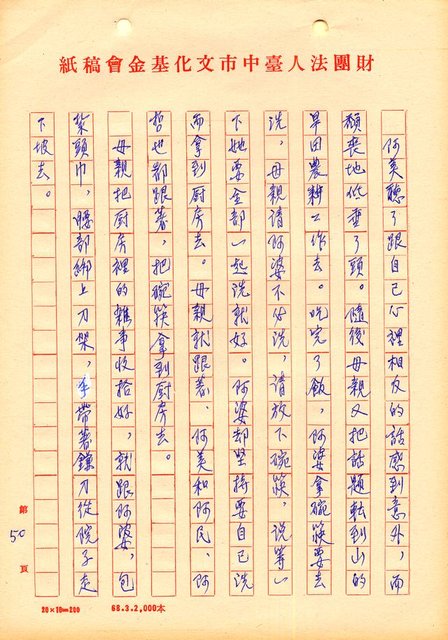 財團法人臺中市文化基金會稿紙
阿美聽了跟自己心裡相反的話感到意外,而
頹喪地低垂了頭。隨後母親又把話題転到山的
旱田農耕工作去。吃完了飯,阿婆拿碗筷要去
洗,母親請阿婆不必洗,請放下碗筷,說等一
下她要全部一起洗就好。阿婆却堅持要自己洗
而拿到厨房去。母親就跟着、阿美和阿民、阿
哲也都跟着,把碗筷拿到厨房去。
母親把厨房裡的雜事收拾好,就跟阿婆,包
紮頭巾,腰部綁上刀架,手帶着鐮刀從院子走
下坡去。
第50頁
20×10=200 68.3.2,000本